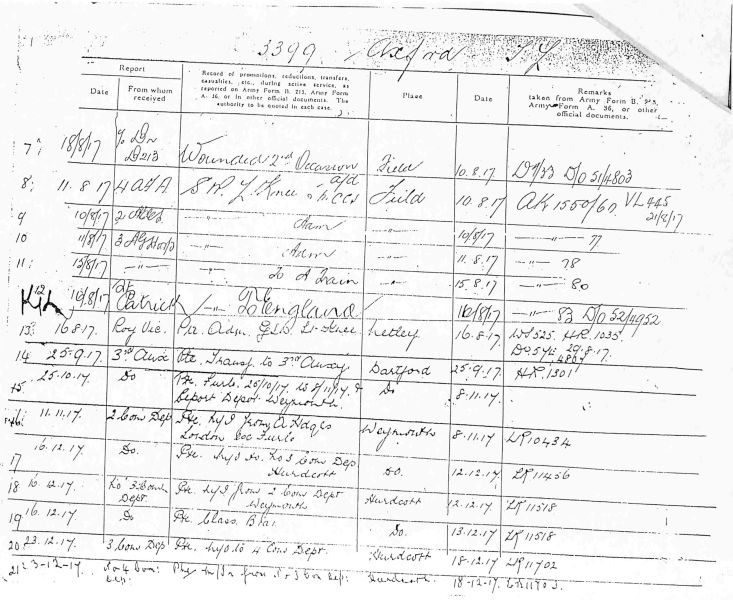 3399 Axford T L
Report
Date
From whom received
Record of promotions, reductions, transfers,
casualties, etc., during active service, as
reported on Army Form B. 213, Army Form
A. 36, or in other official documents. The
authority to be quoted in each case.
Place
Date
Remarks
taken from Army Form B. 213,
Army Form A. 36, or other
official documents.
7 18/8/17 B213 Wounded 2nd Occasion Field 10.8.17 D/O 51/4803
8 11.8.17 4 AFA S.W. L. Knee Field 10.8.17 AK 1550/60 VL 445
21/8/17
9 10/8/17 2 Adm 10/8/17 77
10 11/8/17 3 Adm 11.8.17 78
11 15/8/17 To A Train 15.8.17 80
12 16/8/17 St Patrick To England 16/8/17 83 D/O 52/4952
13 16.8.17 Roy Vic. Pte. Adm. G.S.W. Lt. Knee Netley 16.8.17 W 525. HR. 1035.
29.8.17.
14 25.9.17 3rd Aux Pte. Transf. to 3rd Auxy Dartford 25.9.17 HR. 1301
15 25.10.17. Do Pte. Furlo. 25/10/17 to 8/11/17 &
Report Depot Weymouth. Do 8.11.17.
16 11.11.17. 2 Com Dep Pte. from A. Hdqrs
London Furlo Weymouth 8.11.17 LR 10434
17 16.12.17. Do. Pte. to No 3 Com Dep
Hurdcott Do. 12.12.17. LR 11456
18 16.12.17. No 3 Com
Dept. Pte. from 2 Com Dept
Weymouth Hurdcott 12.12.17. LR 11518
19 16.12.17. Do Pte. Class. B1a1 Do. 13.12.17. LR 11518
20 23.12.17. 3 Com Dep Pte. to 4 Com Dept. Hurdcott 18.12.17 LR 11702
21 23-12-17. No 4 Com:
Dep: from No 3 Com Dep: Hurdcott: 18-12-17.